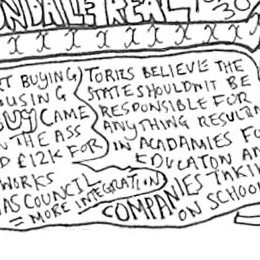 NDALE REAL
30
X X X X X X X X X X X
BUYING
OUSING
BUY CAME
N THE ASS
£12K FOR
WORKS
AS COUNCIL
= MORE INTEGRATION
TORIES BELIEVE THE
STATE SHOULDN'T BE
RESPONSIBLE FOR
ANYTHING RESULTIN
IN ACADAMIES FO
EDUCATON AN
COMPANIES TAKIN
ON SCHOOL